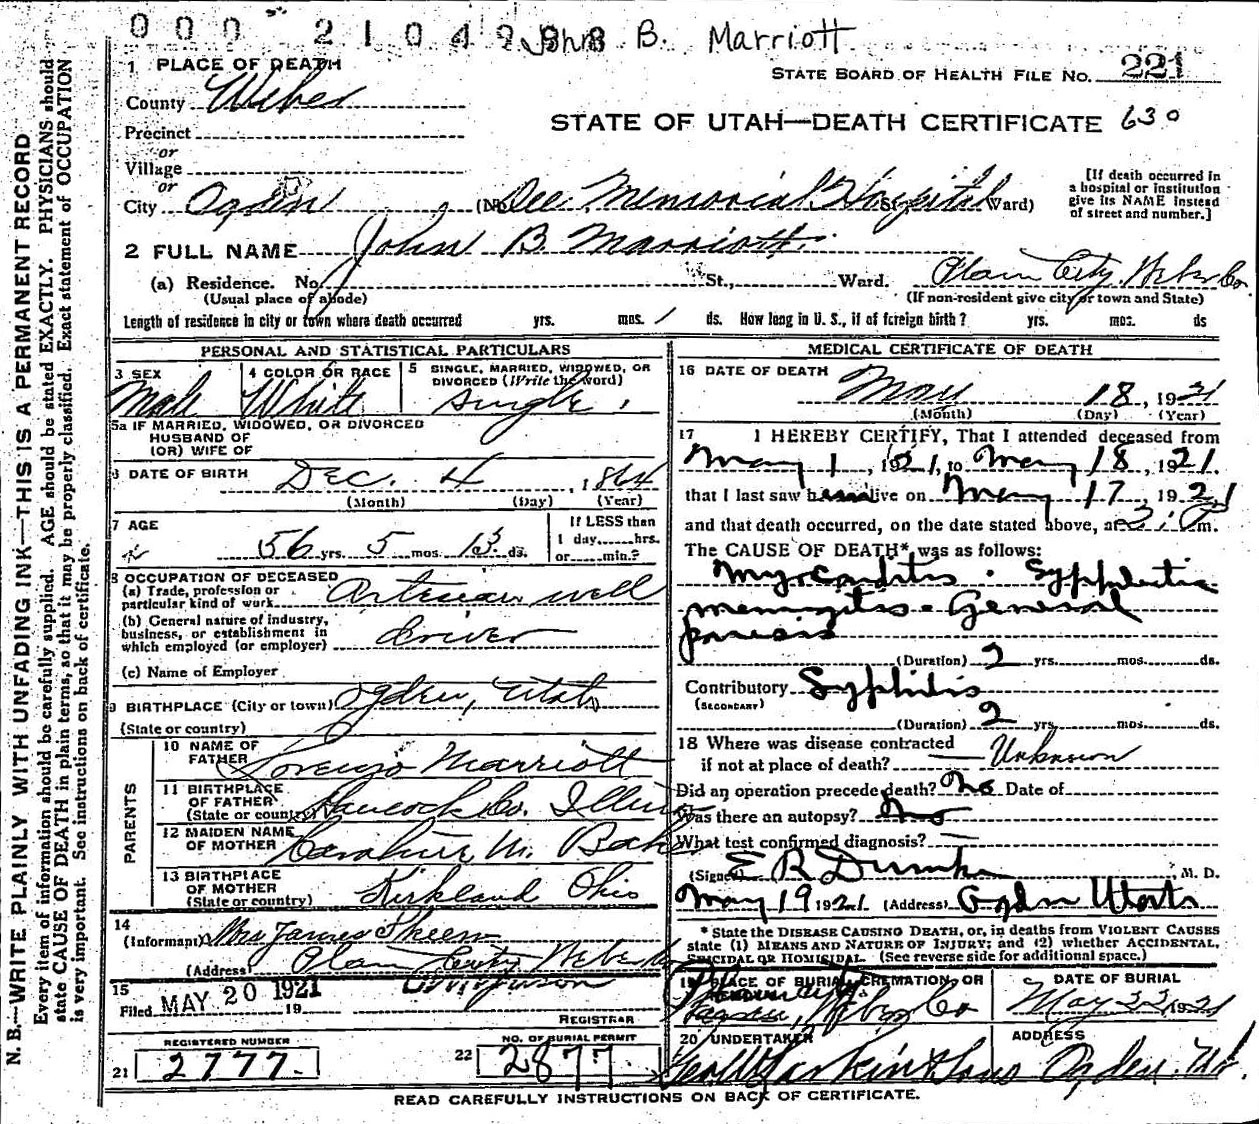 000 2104988 John B. Marriott
1 PLACE OF DEATH
STATE BOARD OF HEALTH FILE NO. 221
County Weber
STATE OF UTAH—DEATH CERTIFICATE 630
Precinct
or
Village
or
City Ogden (No. Dee Memorial Hospital St. Ward)
[If death occurred in a hospital or institution give its NAME instead of street and number.]
2 FULL NAME John B. Marriott
(a) Residence. No. St., Ward. Plain City, Weber Co
(Usual place of abode) (If non-resident give city or town and State)
Length of residence in city or town where death occurred yrs. mos. 1 ds. How long in U. S., if of foreign birth? yrs. mos. ds
PERSONAL AND STATISTICAL PARTICULARS
3 SEX Male
4 COLOR OR RACE White
5 SINGLE, MARRIED, WIDOWED, OR DIVORCED (Write the word) single
5a IF MARRIED, WIDOWED, OR DIVORCED
HUSBAND OF
(OR) WIFE OF
6 DATE OF BIRTH Dec. 4, 1864
(Month) (Day) (Year)
7 AGE 56 yrs. 5 mos. 13 ds.
If LESS than 1 day, hrs. or min.?
8 OCCUPATION OF DECEASED
(a) Trade, profession or particular kind of work Artesian well
(b) General nature of industry, business, or establishment in which employed (or employer) driver
(c) Name of Employer
9 BIRTHPLACE (City or town) Ogden, Utah
(State or country)
PARENTS
10 NAME OF FATHER Lorenzo Marriott
11 BIRTHPLACE OF FATHER (State or country) Hancock Co. Illinois
12 MAIDEN NAME OF MOTHER Caroline M.
13 BIRTHPLACE OF MOTHER (State or country) Kirkland Ohio
14 (Informant) Mrs James Skeen
(Address) Plain City Weber Co
15 Filed MAY 20 1921 19
REGISTRAR
REGISTERED NUMBER
21 2777.
NO. OF BURIAL PERMIT
22 2877
MEDICAL CERTIFICATE OF DEATH
16 DATE OF DEATH May 18, 1921
(Month) (Day) (Year)
17 I HEREBY CERTIFY, That I attended deceased from
May 1, 1921, to May 18, 1921.
that I last saw him alive on May 17, 1921
and that death occurred, on the date stated above, at m.
The CAUSE OF DEATH* was as follows:
Myocarditis. Syphilitic
meningitis - General
paresis
(Duration) 2 yrs. mos. ds.
Contributory Syphilis
(SECONDARY)
(Duration) 2 yrs. mos. ds.
18 Where was disease contracted
if not at place of death? Unknown
Did an operation precede death? No Date of
Was there an autopsy? No
What test confirmed diagnosis? —
(Signed) E R Dumke, M. D.
May 19 1921 (Address) Ogden Utah
* State the DISEASE CAUSING DEATH, or, in deaths from VIOLENT CAUSES
state (1) MEANS AND NATURE OF INJURY; and (2) whether ACCIDENTAL,
SUICIDAL OR HOMICIDAL. (See reverse side for additional space.)
19 PLACE OF BURIAL, CREMATION OR REMOVAL Weber Co
DATE OF BURIAL May 22 1921
20 UNDERTAKER Geo W Larkin & Sons
ADDRESS Ogden. Ut.
READ CAREFULLY INSTRUCTIONS ON BACK OF CERTIFICATE.
N. B.—WRITE PLAINLY WITH UNFADING INK—THIS IS A PERMANENT RECORD
Every item of information should be carefully supplied. AGE should be stated EXACTLY. PHYSICIANS should
state CAUSE OF DEATH in plain terms, so that it may be properly classified. Exact statement of OCCUPATION
is very important. See instructions on back of certificate.